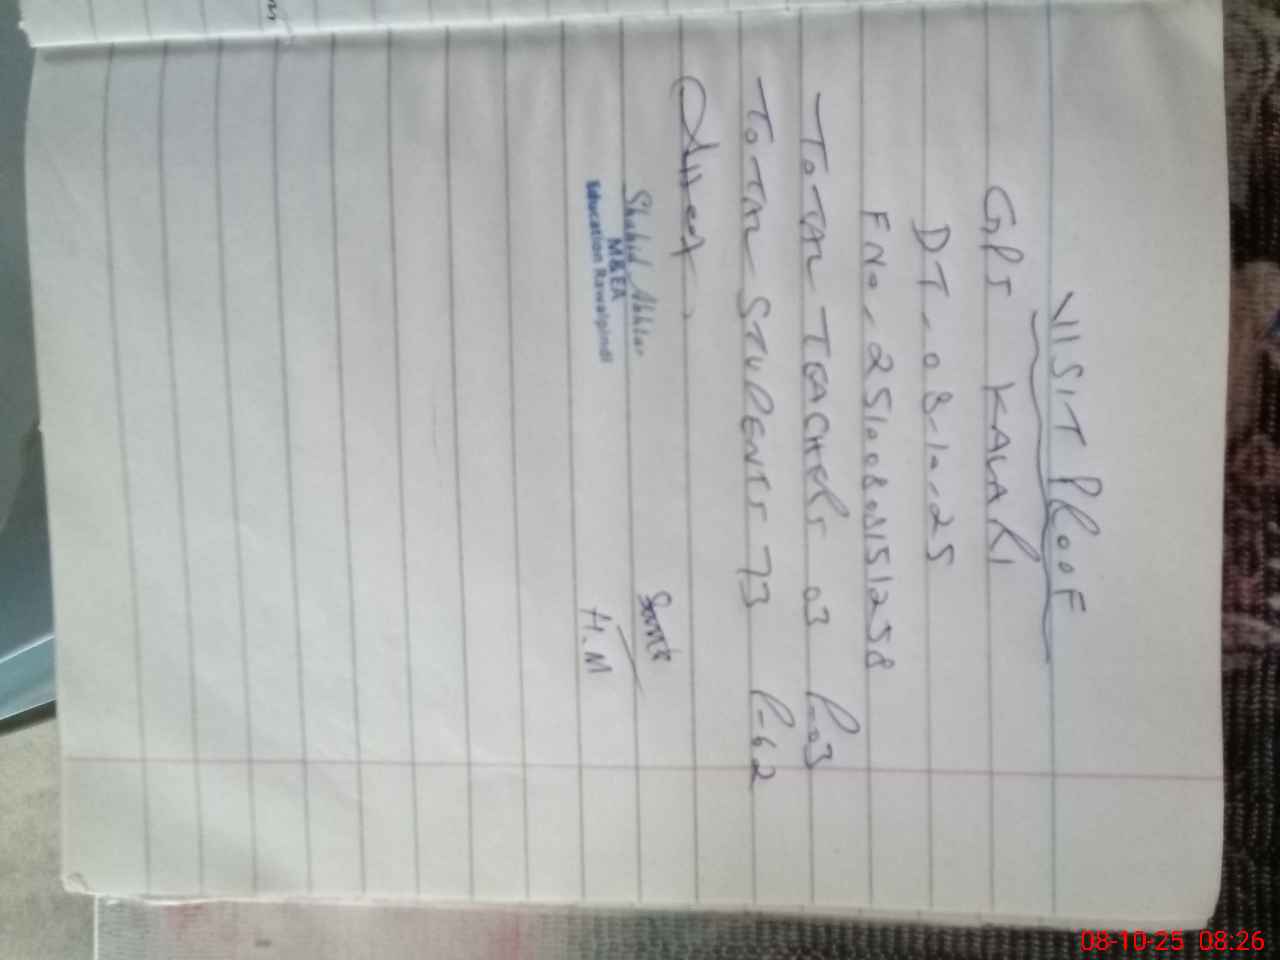 VISIT PROOF
GPS KALARI
DT- 08-10-25
F No- 25100808151258
TOTAL TEACHERS 03 P-03
TOTAL STUDENTS 73 P-62
Shahid Akhtar
M&EA
Education Rawalpindi
H.M
08-10-25 08:26